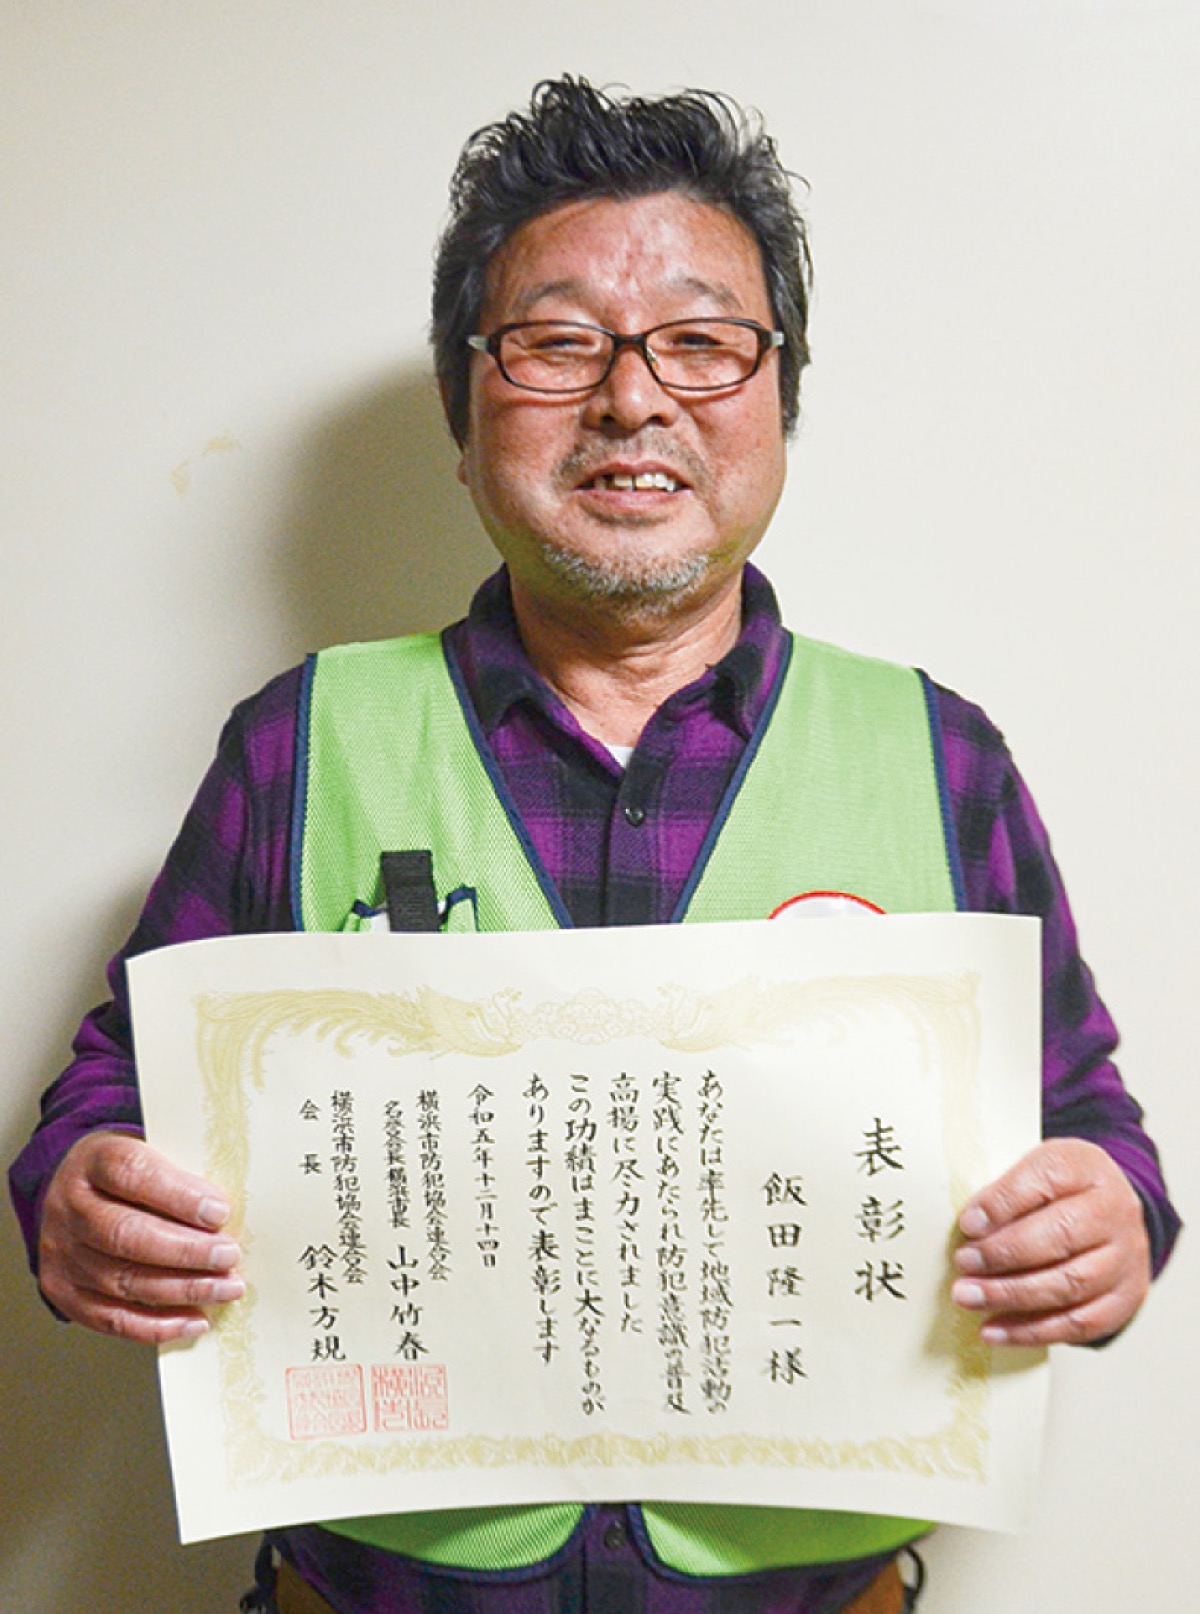 表彰状
飯田隆一様
あなたは率先して地域防犯活動の
実践にあたられ防犯意識の普及
高揚に尽力されました
この功績はまことに大なるものが
ありますので表彰します
令和五年十二月十四日
横浜市防犯協会連合会
名誉会長横浜市長 山中竹春
横浜市防犯協会連合会
会長 鈴木方規